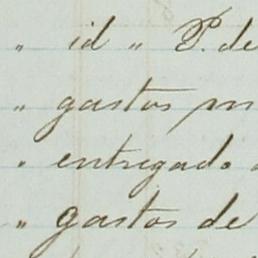 " id " P. de
" gastos
" entregado
" gastos de